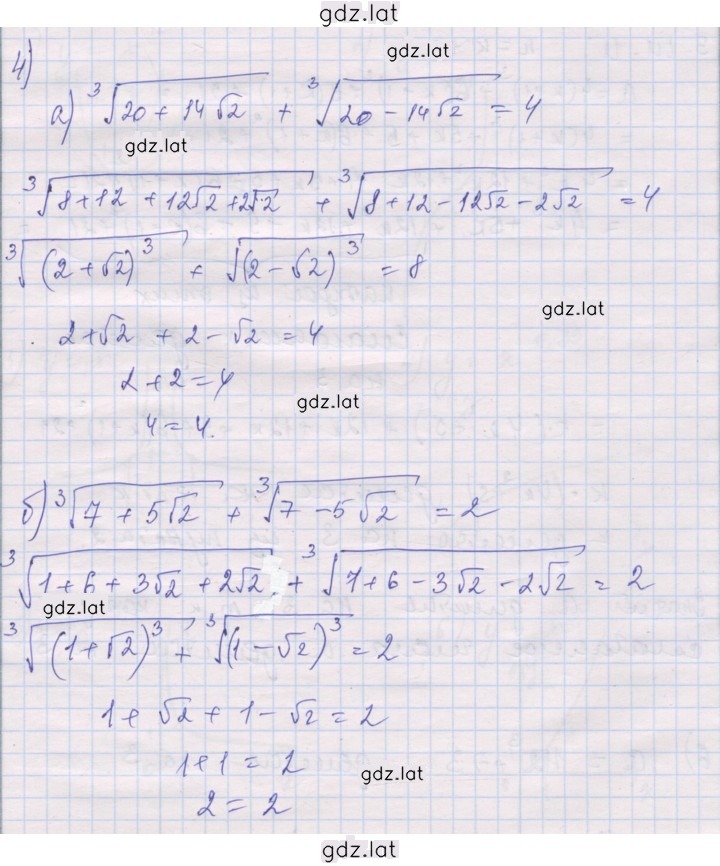 gdz.lat
gdz.lat
4)
а) ∛(20 + 14√2) + ∛(20 - 14√2) = 4
gdz.lat
∛(8 + 12 + 12√2 + 2√2) + ∛(8 + 12 - 12√2 - 2√2) = 4
∛((2 + √2)³) + √((2 - √2)³) = 8
gdz.lat
2 + √2 + 2 - √2 = 4
2 + 2 = 4
gdz.lat
4 = 4.
б) ∛(7 + 5√2) + ∛(7 - 5√2) = 2
∛(1 + 6 + 3√2 + 2√2) + ∛(7 + 6 - 3√2 - 2√2) = 2
gdz.lat
∛((1 + √2)³) + ∛((1 - √2)³) = 2
1 + √2 + 1 - √2 = 2
1 + 1 = 2
gdz.lat
2 = 2
gdz.lat